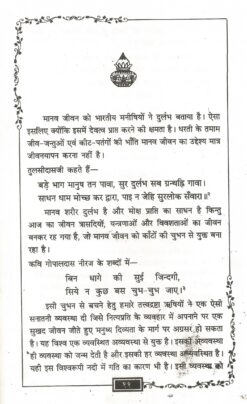 मानव जीवन को भारतीय मनीषियों ने दुर्लभ बताया है। ऐसा
इसलिए क्योंकि इसमें देवत्व प्राप्त करने की क्षमता है। धरती के तमाम
जीव-जन्तुओं एवं कीट-पतंगों की भाँति मानव जीवन का उद्देश्य मात्र
जीवनयापन करना नहीं है।
तुलसीदासजी कहते हैं—
बड़े भाग मानुष तन पावा, सुर दुर्लभ सब ग्रन्थह्लि गावा।
साधन धाम मोच्छ कर द्वारा, पाइ न जेहि सुरलोक सँवारा॥
मानव शरीर दुर्लभ है और मोक्ष प्राप्ति का साधन है किन्तु
आज का जीवन त्रासदियों, यन्त्रणाओं और विवशताओं का जीवन
बनकर रह गया है, जो मानव जीवन को काँटों की चुभन से युक्त बना
रहा है।
कवि गोपालदास नीरज के शब्दों में—
बिन धागे की सुई जिन्दगी,
सिये न कुछ बस चुभ-चुभ जाए।
इसी चुभन से बचने हेतु हमारे तत्त्वद्रष्टा ऋषियों ने एक ऐसी
सनातनी व्यवस्था दी जिसे नित्यप्रति के व्यवहार में अपनाने पर एक
सुखद जीवन जीते हुए मनुष्य दिव्यता के मार्ग पर अग्रसर हो सकता
है। यह विश्व एक व्यवस्थित अव्यवस्था से युक्त है। इसकी अव्यवस्था
ही व्यवस्था को जन्म देती है और इसकी हर व्यवस्था अव्यवस्थित है।
यही इस विश्वरूपी नदी में गति का कारण भी है। इसी व्यवस्था को